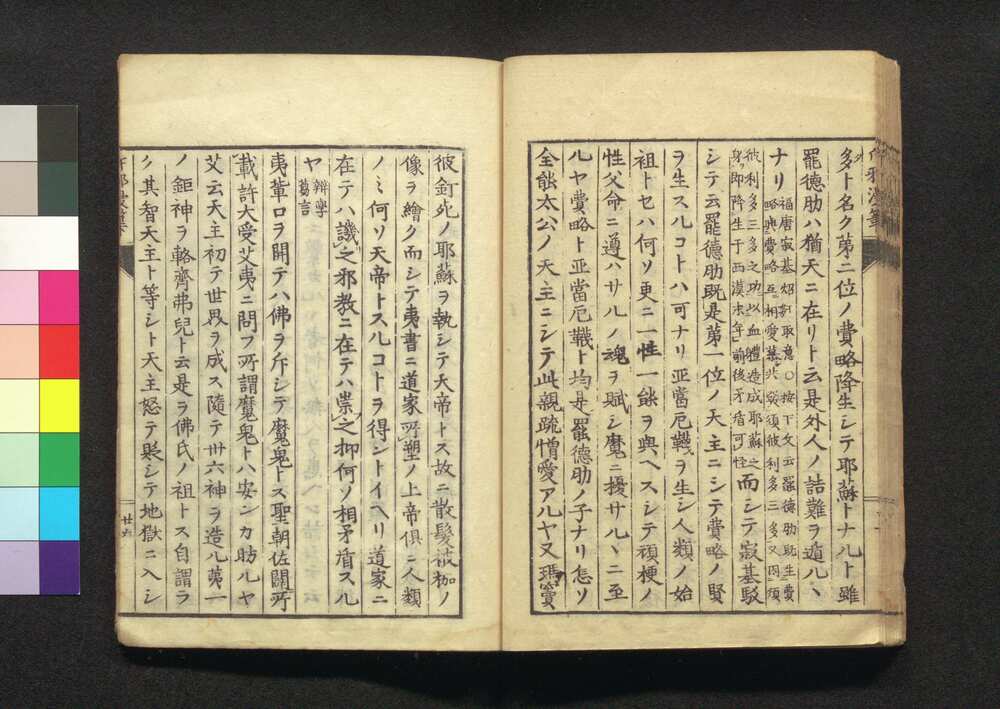 多ト名ク苐二位ノ費略降生シテ耶蘇トナルト雖
罷德肋ハ猶天ニ在リト云是外人ノ詰難ヲ遁ルヽ
ナリ福唐寂基 取意○按下文云罷德肋既生費
略與費略互相愛慕 須彼利多三多又因須
彼利多三多之功以血體造成耶蘇之
身即降生于西漢末年前後矛盾可怪而シテ寂基駁
シテ云罷德肋既是第一位ノ天主ニシテ費略ノ賢
ヲ生スルコトハ可ナリ亚當厄韈ヲ生シ人類ノ始
祖トセハ何ソ更ニ一性一能ヲ與ヘスシテ頑梗ノ
性父命ニ遵ハサルノ魂ヲ賦シ魔ニ擾サルヽニ至
ルヤ費略ト亚當厄韈ト均是罷德肋ノ子ナリ怎ソ
全能太公ノ天主ニシテ此親疏憎愛アルヤ又瑪竇
彼釘死ノ耶蘇ヲ執シテ天帝トス故ニ散髮被枷ノ
像ヲ繪ク而シテ夷書ニ道家所塑ノ上帝俱ニ人類
ノミ何ソ天帝トスルコトヲ得ントイヘリ道家ニ
在テハ譏之邪教ニ在テハ崇之抑何ソ相矛盾スル
ヤ辯學
蒭言
夷軰口ヲ開テハ佛ヲ斥シテ魔鬼トス聖朝佐闢所
載許大受艾夷ニ問フ所謂魔鬼トハ安ンカ昉ルヤ
艾云天主初テ世界ヲ成ス隨テ卅六神ヲ造ル苐一
ノ鉅神ヲ輅齊弗兒ト云是ヲ佛氏ノ祖トス自謂ラ
ク其智天主ト等シト天主怒テ貶シテ地獄ニ入シ
廿六